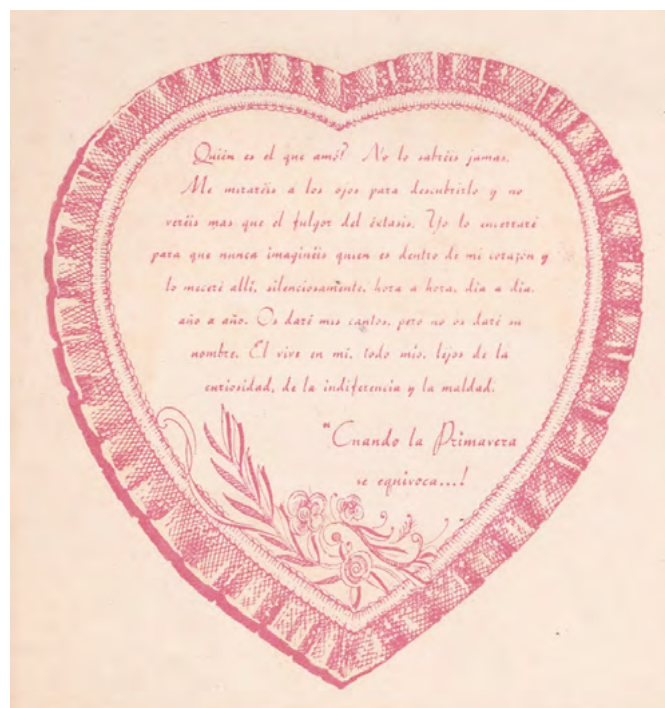 Quién es el que amó? No lo sabréis jamas.
Me miraréis a los ojos para descubrirlo y no
veréis mas que el fulgor del éxtasis. Yo lo encerraré
para que nunca imaginéis quien es dentro de mi corazón y
lo meceré allí, silenciosamente, hora a hora, día a día.
año a año. Os daré mis cantos, pero no os daré su
nombre. El vive en mi, todo mío, lejos de la
curiosidad, de la indiferencia y la maldad.
"Cuando la Primavera
se equivoca...!